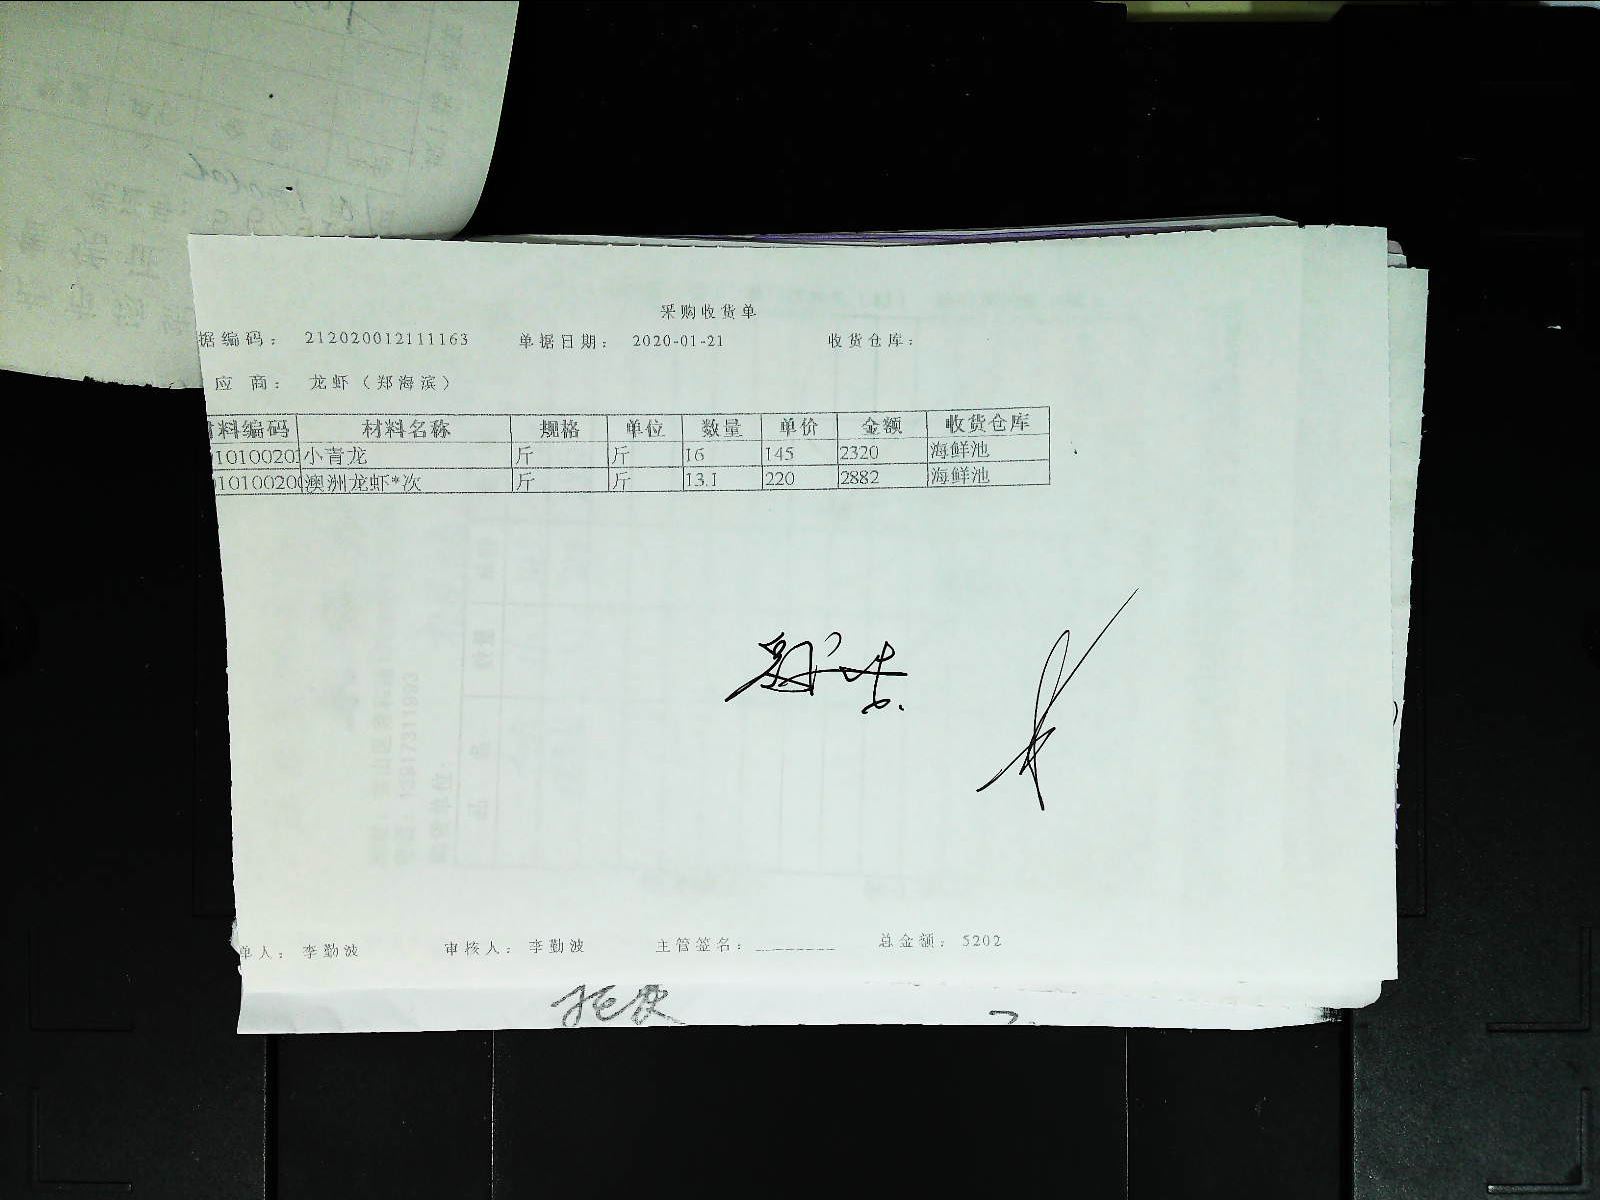 采购收货单
据编码： 212020012111163 单据日期： 2020-01-21 收货仓库：
应 商： 龙虾（郑海滨）
材料编码 材料名称 规格 单位 数量 单价 金额 收货仓库
10100202 小青龙 斤 斤 16 145 2320 海鲜池
10100200 澳洲龙虾*次 斤 斤 13.1 220 2882 海鲜池
单人： 李勤波 审核人： 李勤波 主管签名： 总金额： 5202